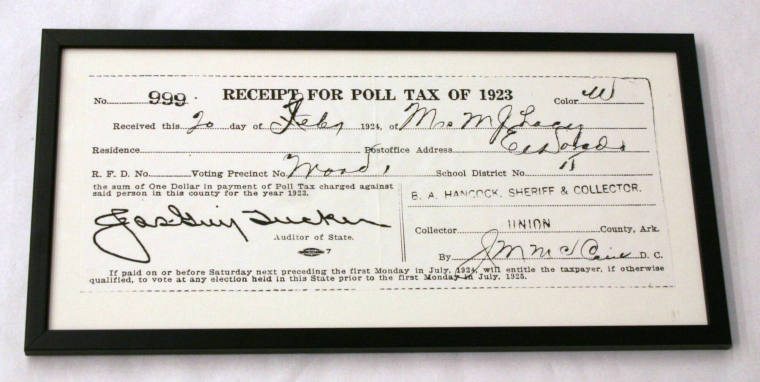 No. 999 RECEIPT FOR POLL TAX OF 1923 Color W
Received this 20 day of Feby 1924, of Mrs M J Lacy
Residence Postoffice Address El Dorado
R. F. D. No. Voting Precinct No. Ward 1 School District No.
the sum of One Dollar in payment of Poll Tax charged against
said person in this county for the year 1923.
B. A. HANCOCK, SHERIFF & COLLECTOR.
Jas Guy Tucker
Auditor of State.
7
Collector UNION County, Ark.
By J M McCain D. C.
If paid on or before Saturday next preceding the first Monday in July, 1924, will entitle the taxpayer, if otherwise
qualified, to vote at any election held in this State prior to the first Monday in July, 1925.